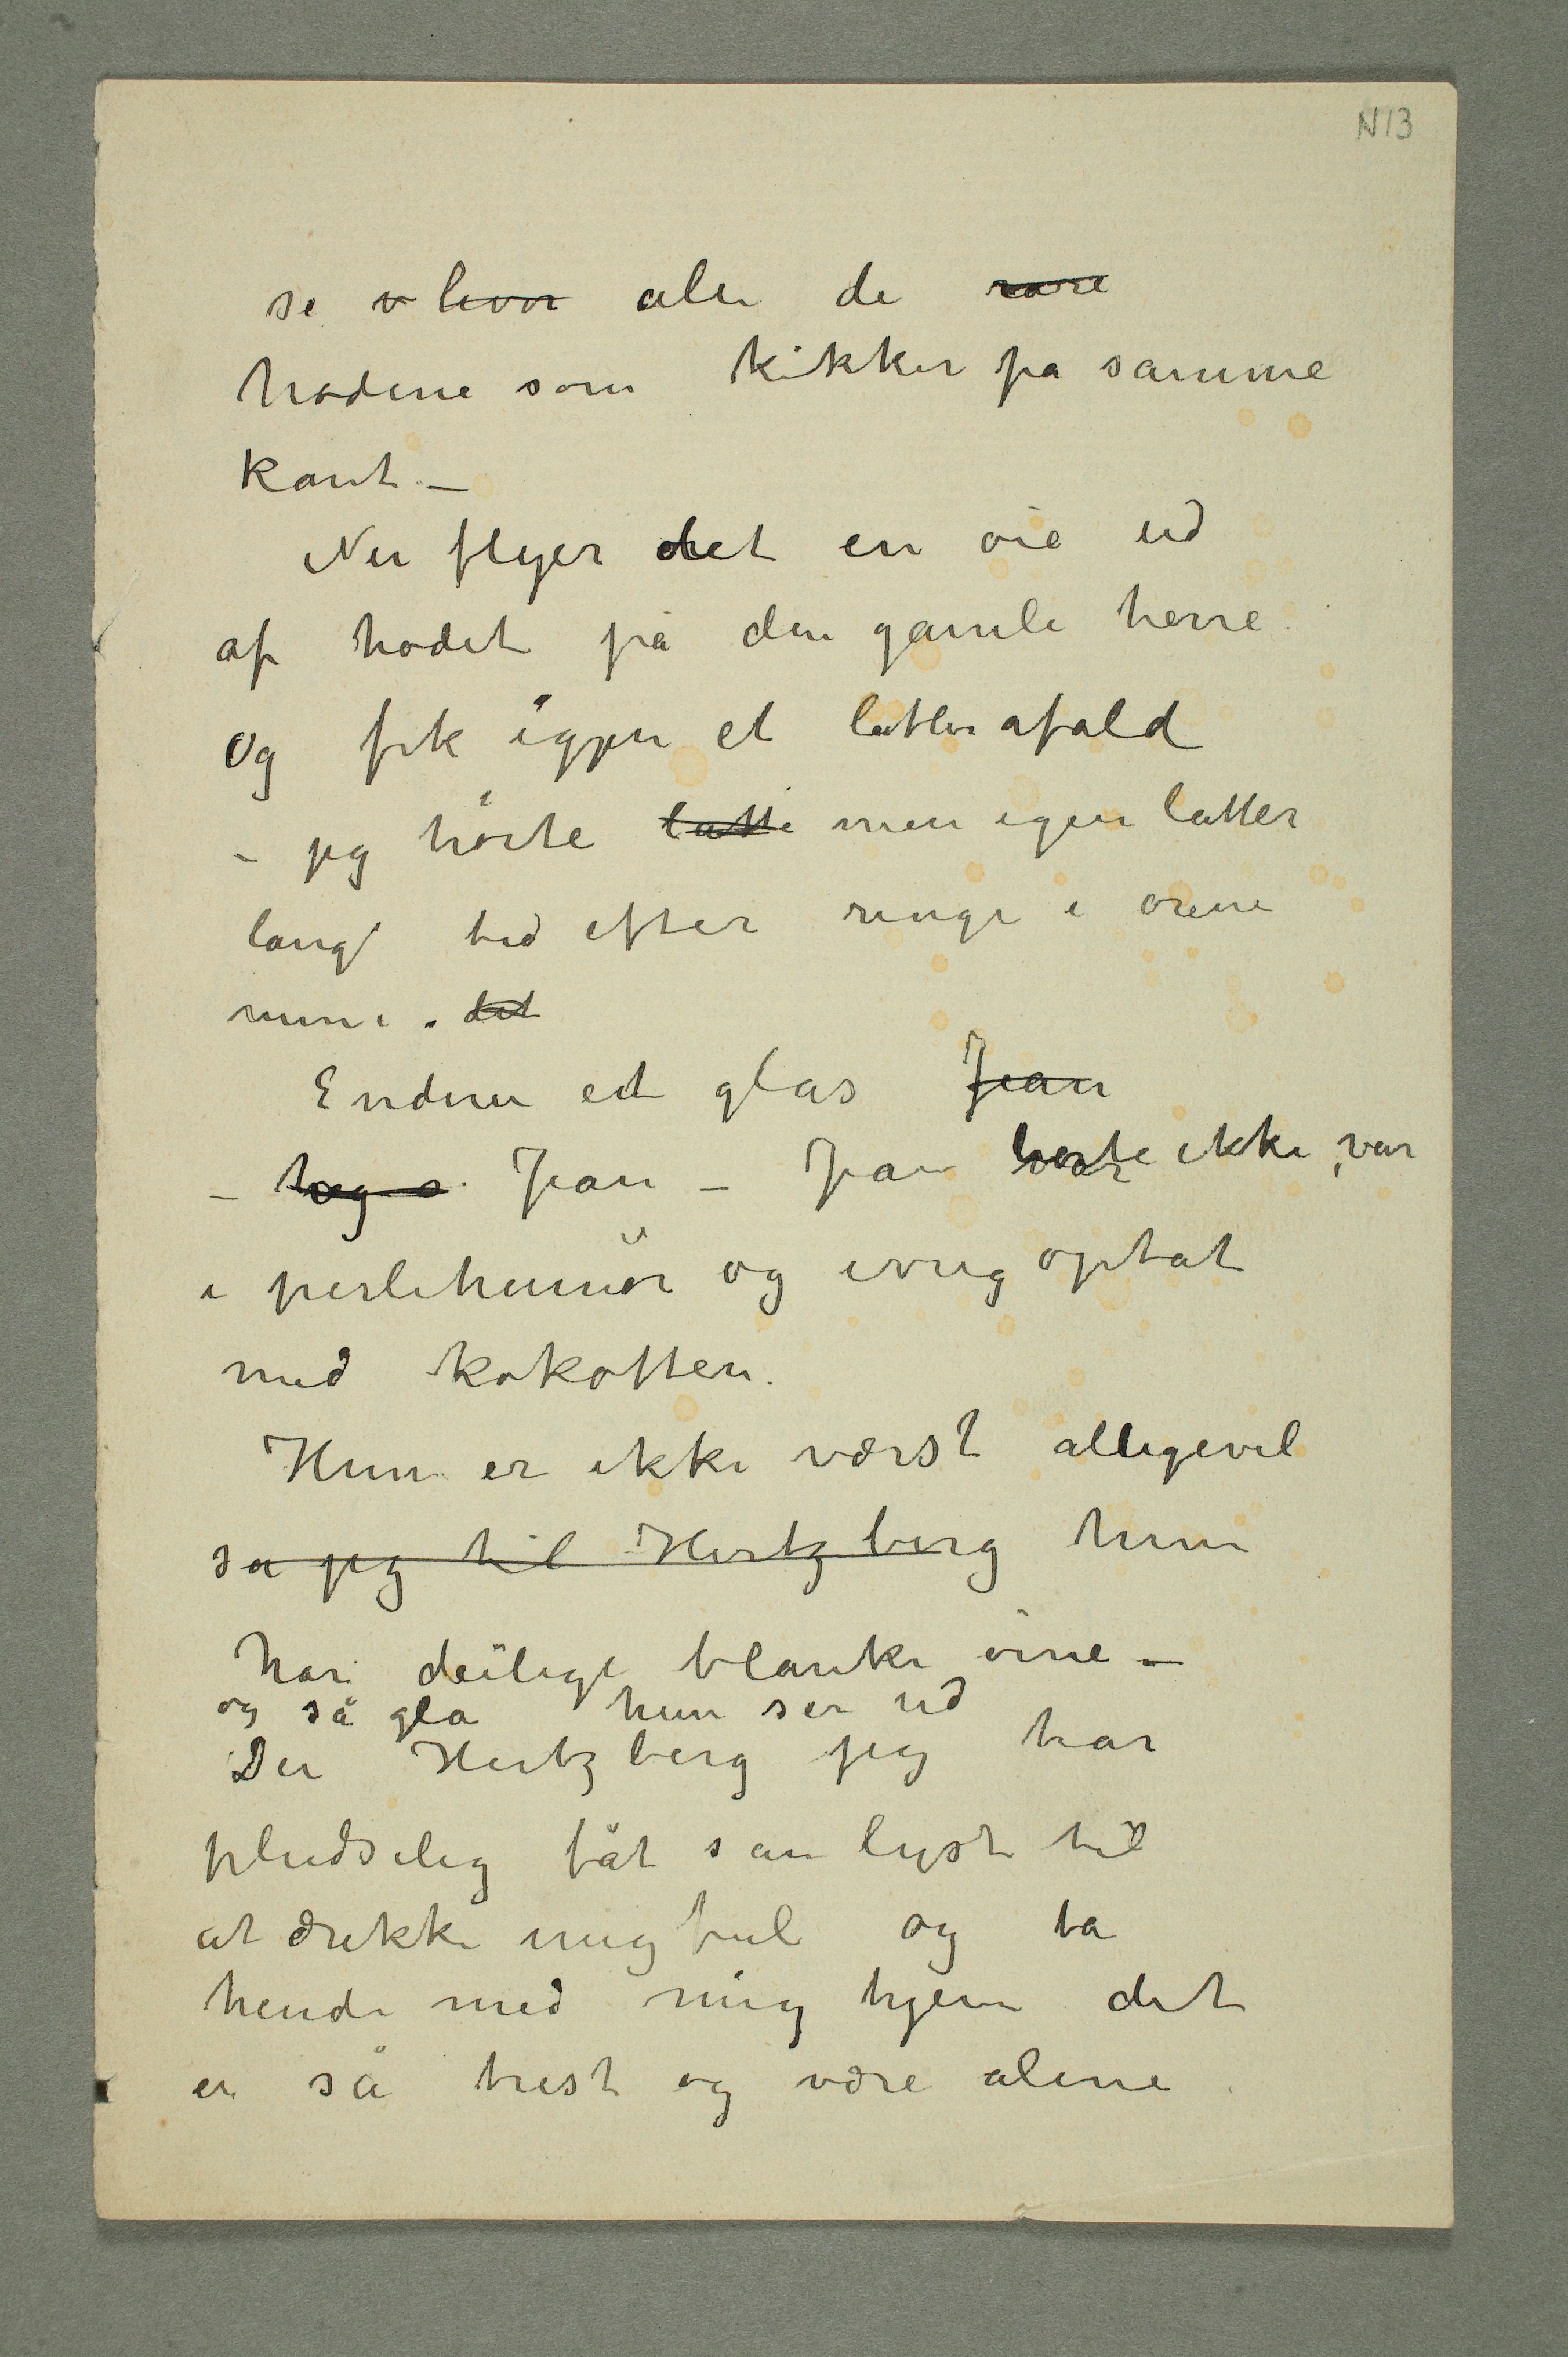 N 13
se v hvor alle de rare
hodene som kikker på samme
kant –
Nu flyer det en øie ud
af hodet på den gamle herre
Og fik igjen et latterafald
– jeg hørte latte min egen latter
lang tid efter ringe i ørene
mine. det
Endnu et glas Jean
– Jean – Jean hørte ikke, var
i perlehumør og ivrig optat
med kokotten.
Hun er ikke værst alligevel
sa jeg til Hertzberg hun
har deilige blanke øine –
og så gla hun ser ud
Du Hertzberg jeg har
pludselig fåt san lyst til
at drikke mig ful og ta
hende med mig hjem det
er så trist og være alene